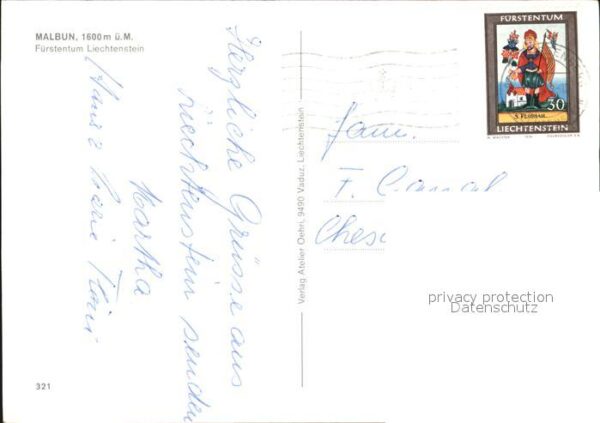 MALBUN, 1600 m ü.M.
Fürstentum Liechtenstein
Herzliche Grüsse aus
Liechtenstein senden
Martha
Hans
321
Verlag Atelier Oehri, 9490 Vaduz, Liechtenstein
FÜRSTENTUM
30
S. FLORIAN
LIECHTENSTEIN
Fam.
F.
privacy protection
Datenschutz